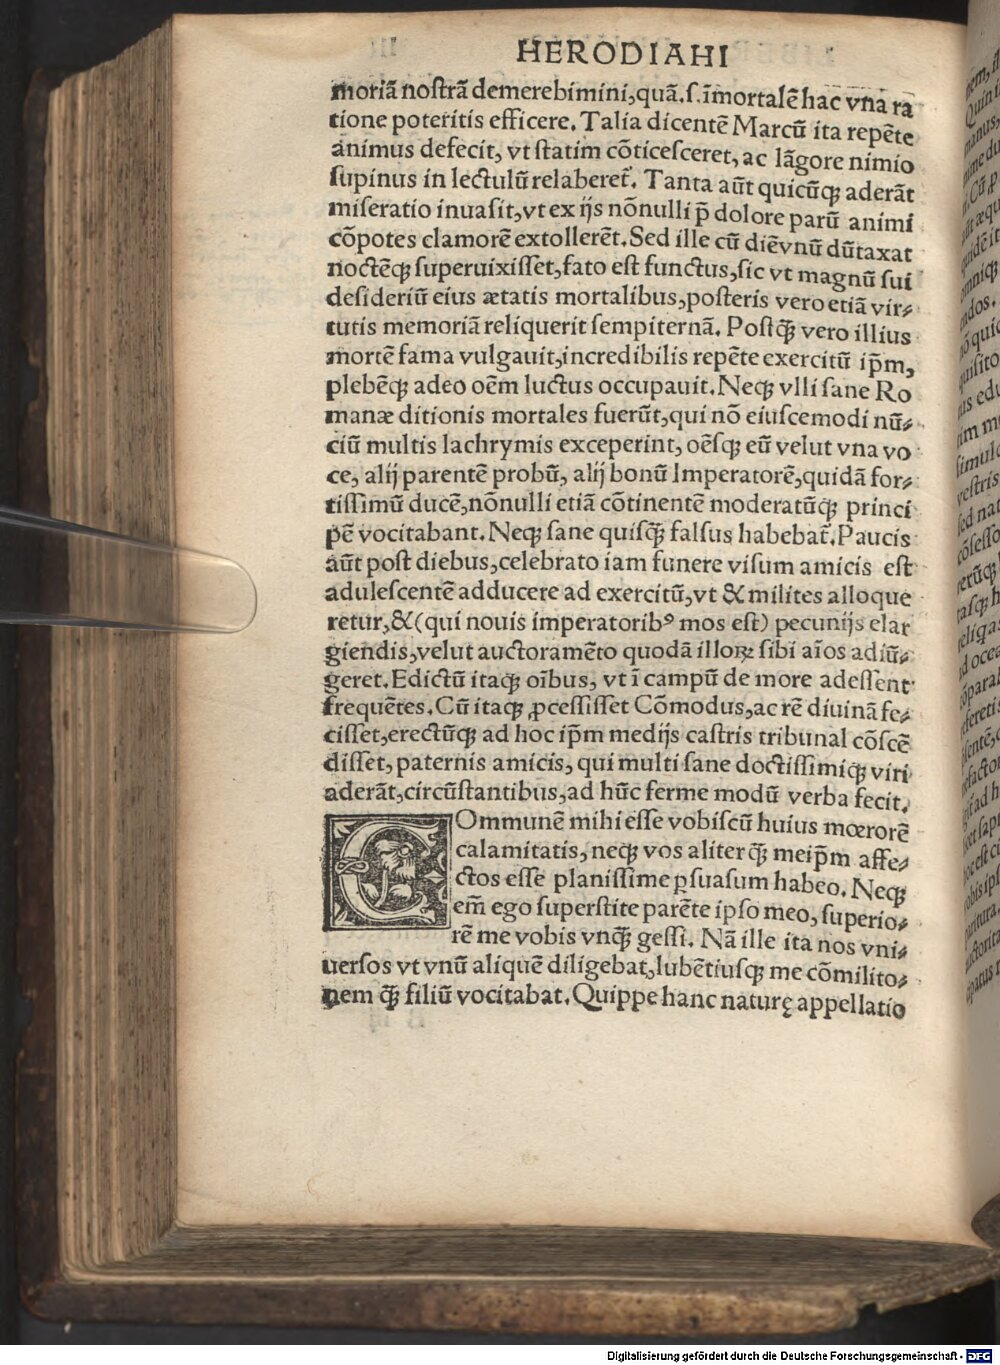 HERODIAHI
moriā noſtrā demerebimini,quā.ſ.īmortalē hac vna ra
tione poteritis efficere. Talia dicentē Marcū ita repēte
animus defecit, vt ſtatim cōticeſceret, ac lāgore nimio
ſupinus in lectulū relaberet᷑. Tanta aūt quicūqꝫ aderāt
miſeratio inuaſit,vt ex ijs nōnulli p̄ dolore parū animi
cōpotes clamorē extollerēt. Sed ille cū diēvnū dūtaxat
noctēqꝫ ſuperuixiſſet,fato eſt functus,ſic vt magnū ſui
deſideriū eius ætatis mortalibus,poſteris vero etiā vir⸗
tutis memoriā reliquerit ſempiternā. Poſtqꝫ̄ vero illius
mortē fama vulgauit,incredibilis repēte exercitū ip̄m,
plebēqꝫ adeo oēm luctus occupauit. Neqꝫ vlli ſane Ro
manæ ditionis mortales fuerūt,qui nō eiuſcemodi nū⸗
ciū multis lachrymis exceperint, oēſqꝫ eū velut vna vo
ce, alij parentē probū, alij bonū Imperatorē,quidā for⸗
tiſſimū ducē,nōnulli etiā cōtinentē moderatūqꝫ princi
pē vocitabant. Neqꝫ ſane quiſqꝫ̄ falſus habebat᷑. Paucis
aūt poſt diebus,celebrato iam funere viſum amicis eſt
adulefcentē adducere ad exercitū,vt & milites alloque
retur,&(qui nouis imperatoribꝰ mos eſt) pecunijs elar
giendis,velut auctoramēto quodā illoꝝ ſibi aīos adiū⸗
geret. Edictū itaqꝫ oībus, vt ī campū de more adeſſent
frequētes. Cū itaqꝫ ꝓceſſiſſet Cōmodus,ac rē diuinā fe⸗
ciſſet,erectūqꝫ ad hoc ip̄m medijs caſtris tribunal cōſcē
diſſet, paternis amicis, qui multi ſane doctiſſimiqꝫ viri
aderāt,circūſtantibus,ad hūc ferme modū verba fecit.
COmmunē mihi eſſe vobiſcū huius mœrorē
calamitatis, neqꝫ vos aliter qꝫ̄ meip̄m affe⸗
ctos eſſe planiſſime ꝑſuaſum habeo. Neqꝫ
em̄ ego ſuperſtite parēte ipſo meo, ſuperio⸗
rē me vobis vnqꝫ̄ geſſi. Nā ille ita nos vni⸗
uerſos vt vnū aliquē diligebat,lubētiuſqꝫ me cōmilito⸗
nem qꝫ̄ filiū vocitabat. Quippe hanc naturę appellatio
Digitalisierung gefördert durch die Deutsche Forschungsgemeinschaft - DFG